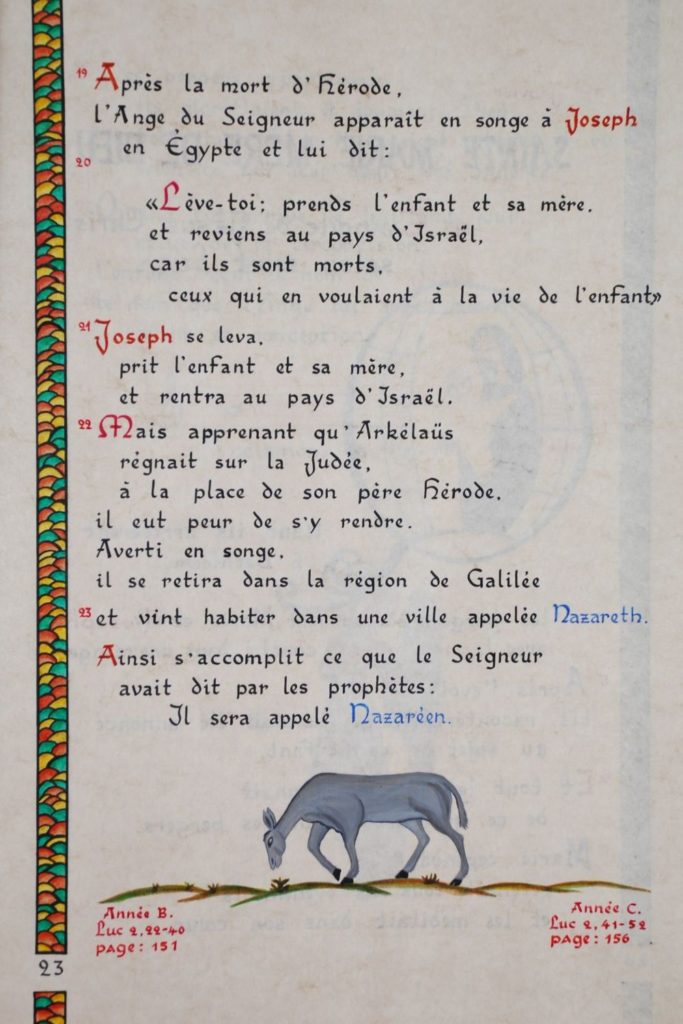 19 Après la mort d'Hérode,
l'Ange du Seigneur apparaît en songe à Joseph
en Égypte et lui dit:
20 «Lève-toi; prends l'enfant et sa mère.
et reviens au pays d'Israël,
car ils sont morts,
ceux qui en voulaient à la vie de l'enfant»
21 Joseph se leva,
prit l'enfant et sa mère,
et rentra au pays d'Israël.
22 Mais apprenant qu'Arkélaüs
régnait sur la Judée,
à la place de son père Hérode,
il eut peur de s'y rendre.
Averti en songe,
il se retira dans la région de Galilée
23 et vint habiter dans une ville appelée Nazareth.
Ainsi s'accomplit ce que le Seigneur
avait dit par les prophètes:
Il sera appelé Nazaréen.
Année B.
Luc 2,22-40
page: 151
Année C.
Luc 2,41-52
page: 156
23